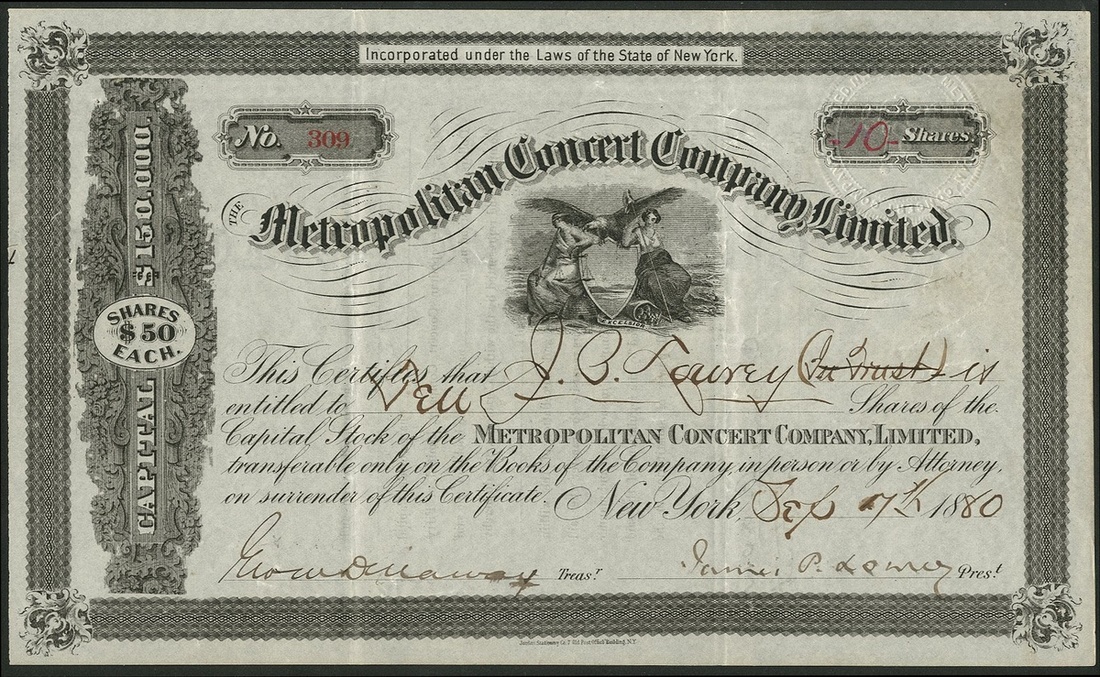 Incorporated under the Laws of the State of New York.
No. 309
-10- Shares
THE Metropolitan Concert Company, Limited.
CAPITAL $150,000.
SHARES $50 EACH.
EXCELSIOR
This Certifies that J. P. Lowrey (In Trust) is
entitled to Ten Shares of the
Capital Stock of the METROPOLITAN CONCERT COMPANY, LIMITED,
transferable only on the Books of the Company, in person or by Attorney,
on surrender of this Certificate. New York, Sep 17th 1880
Treasr
James P. Lowrey Prest